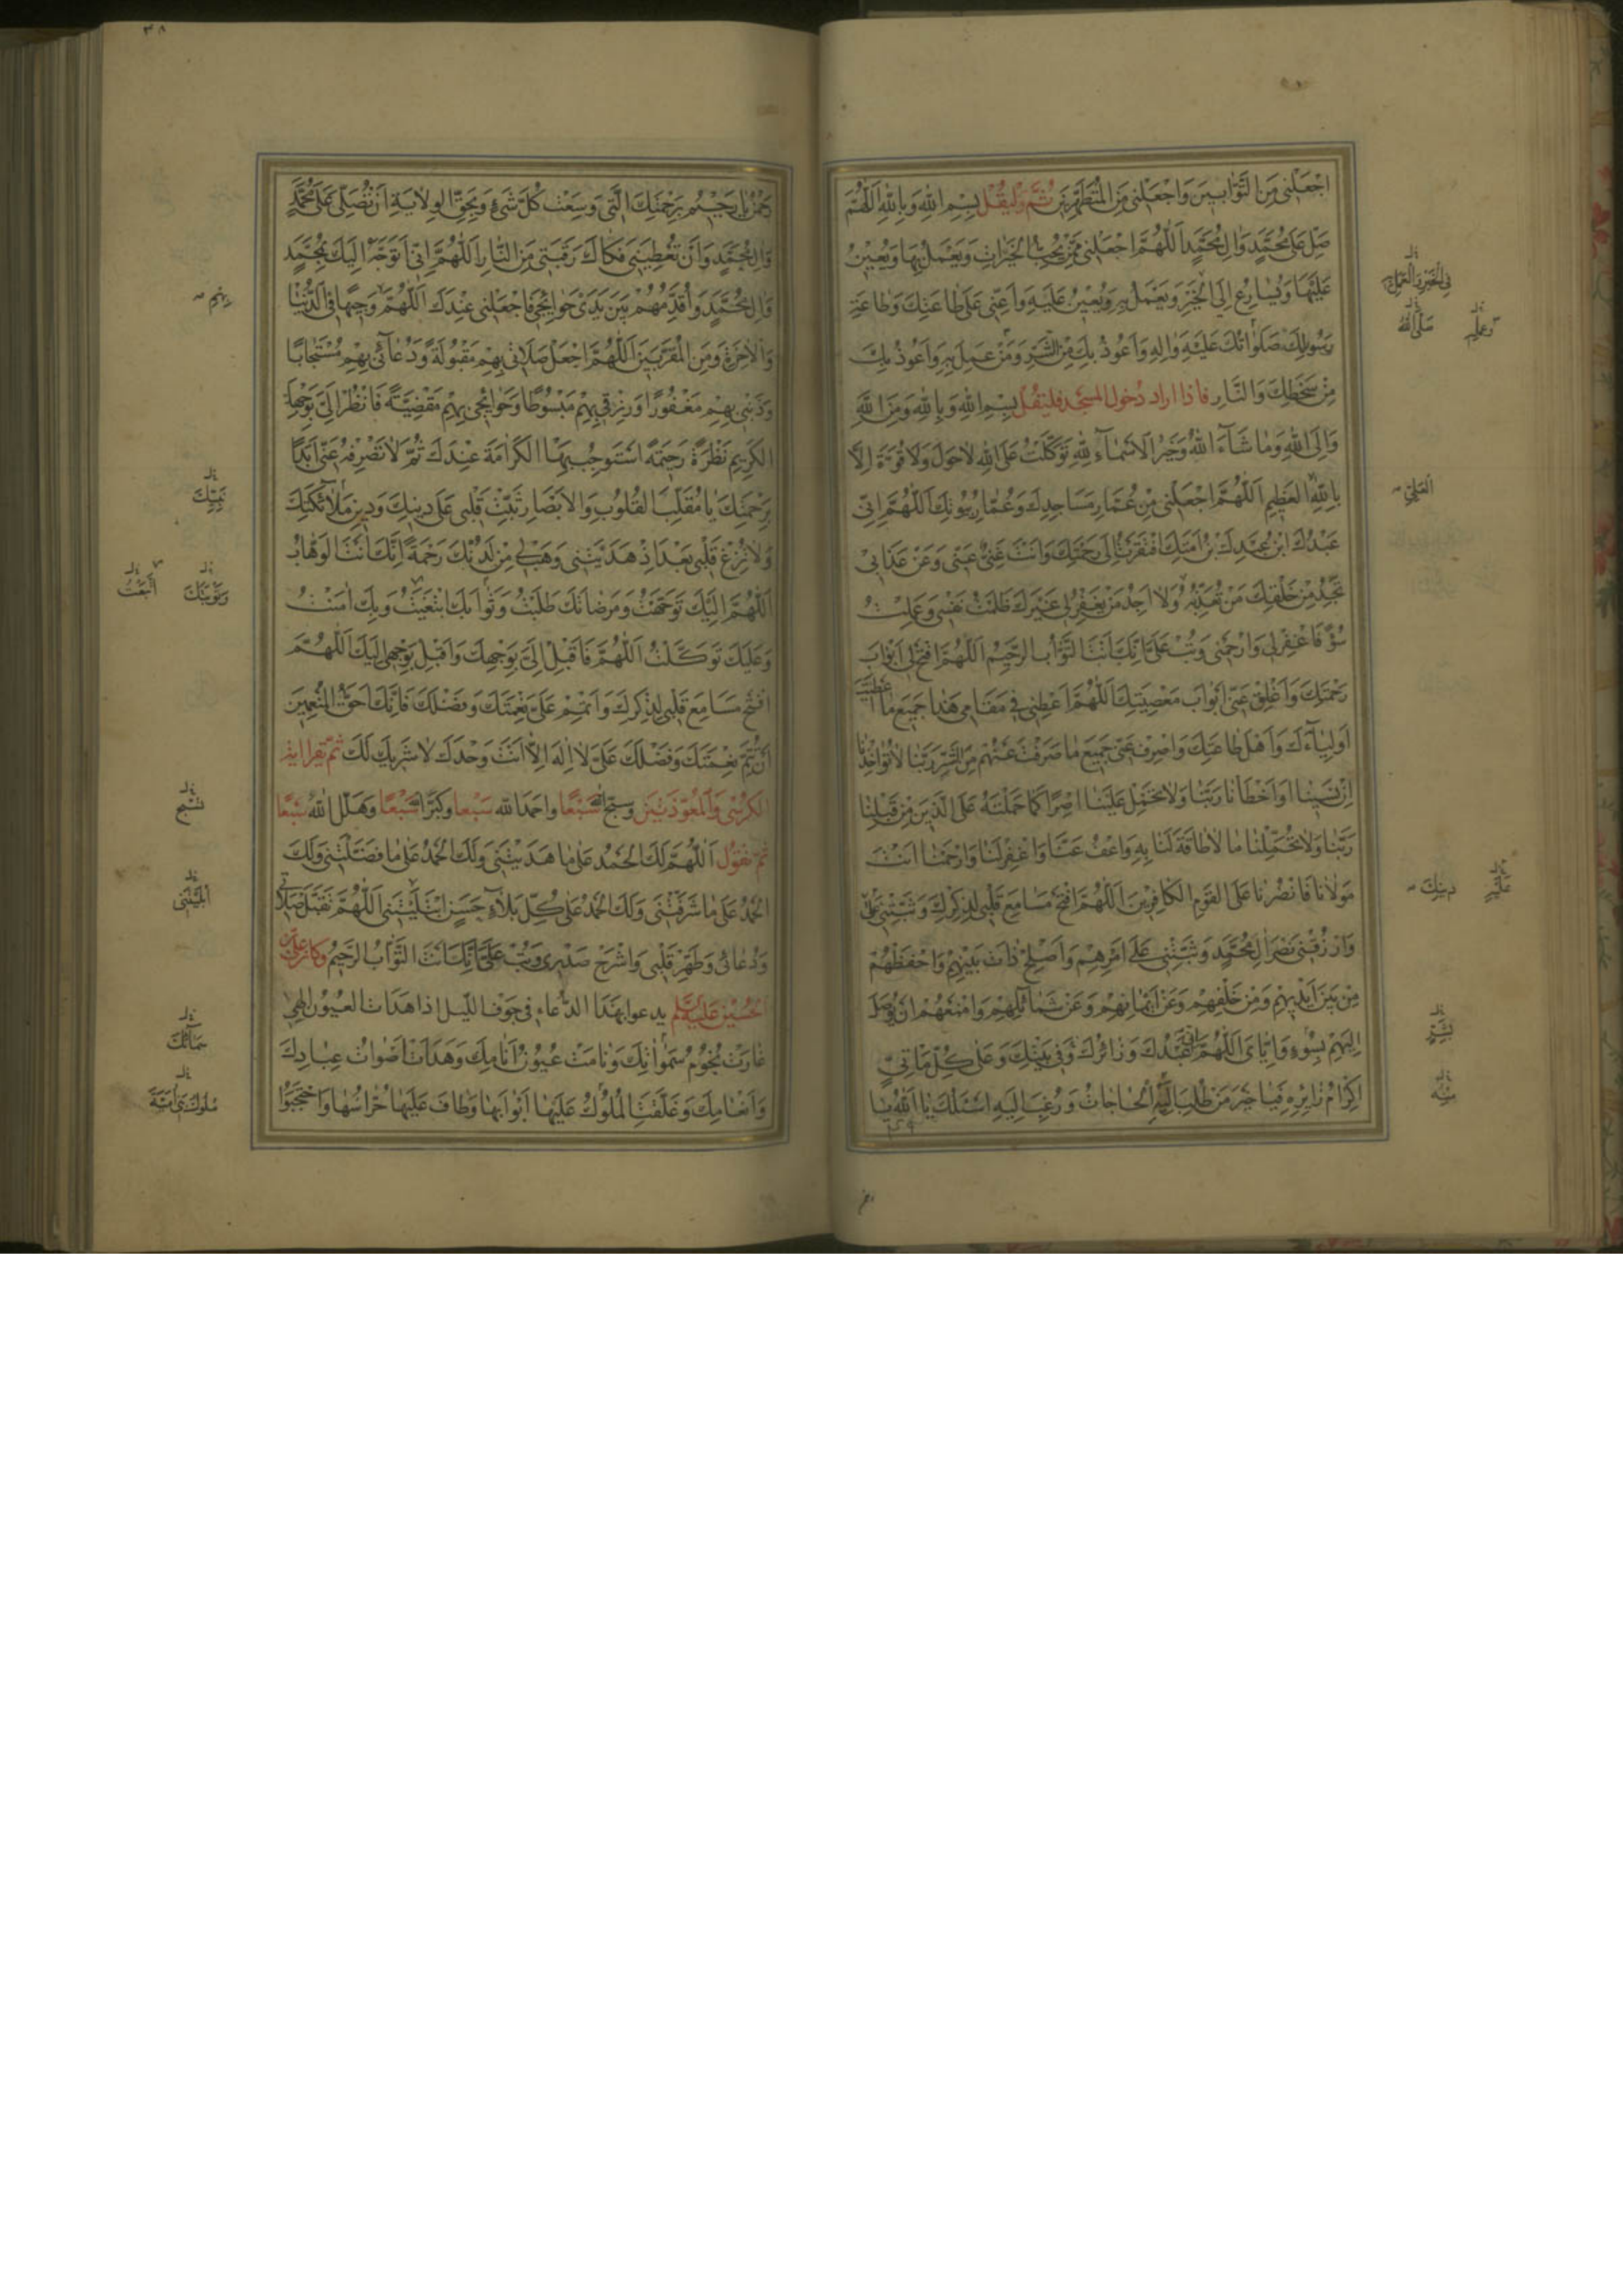 اجْعَلْنِي مِنَ التَّوَّابِينَ وَاجْعَلْنِي مِنَ الْمُتَطَهِّرِينَ ثُمَّ وَلْيَقُلْ بِسْمِ اللهِ وَبِاللهِ اَللّٰهُمَّ
صَلِّ عَلَى مُحَمَّدٍ وَالِ مُحَمَّدٍ اَللّٰهُمَّ اجْعَلْنِي مِمَّنْ يُحِبُّ الْخَيْرَاتِ وَيَعْمَلُ بِهَا وَيُعِينُ
عَلَيْهَا وَيُسَارِعُ اِلَى الْخَيْرِ وَيَعْمَلُ بِهِ وَيُعِينُ عَلَيْهِ وَاَعِنِّي عَلَى طَاعَتِكَ وَطَاعَةِ
رَسُولِكَ صَلَوَاتُكَ عَلَيْهِ وَالِهِ وَاَعُوذُ بِكَ مِنَ الشَّرِّ وَمَنْ عَمِلَ بِهِ وَاَعُوذُ بِكَ
مِنْ سَخَطِكَ وَالنَّارِ فاذا اراد دُخول المسجد فليقُل بِسْمِ اللهِ وَبِاللهِ وَمِنَ اللهِ
وَاِلَى اللهِ وَمَا شَآءَ اللهُ وَخَيْرُ الْاَسْمَآءِ لِلهِ تَوَكَّلْتُ عَلَى اللهِ لَاحَوْلَ وَلَا قُوَّةَ اِلَّا
بِاللهِ الْعَظِيمِ اَللّٰهُمَّ اجْعَلْنِي مِنْ عُمَّارِ مَسَاجِدِكَ وَعُمَّارِ بُيُوتِكَ اَللّٰهُمَّ اِنِّي
عَبْدُكَ ابْنُ عَبْدِكَ بْنُ اَمَتِكَ افْتَقَرْتُ اِلَى رَحْمَتِكَ وَاَنْتَ غَنِيٌّ عَنِّي وَعَنْ عَذَابِي
تَجِدُ مِنْ خَلْقِكَ مَنْ تُعَذِّبُهُ وَلَا اَجِدُ مَنْ يَغْفِرُ لِي غَيْرَكَ ظَلَمْتُ نَفْسِي وَعَمِلْتُ
سُوْءً فَاغْفِرْ لِي وَارْحَمْنِي وَتُبْ عَلَيَّ اِنَّكَ اَنْتَ التَّوَّابُ الرَّحِيمُ اَللّٰهُمَّ افْتَحْ لِي اَبْوَابَ
رَحْمَتِكَ وَاَغْلِقْ عَنِّي اَبْوَابَ مَعْصِيَتِكَ اَللّٰهُمَّ اَعْطِنِي فِي مَقَامِي هَذَا جَمِيعَ مَا اَعْطَيْتَ
اَوْلِيَآءَكَ وَاَهْلَ طَاعَتِكَ وَاصْرِفْ عَنِّي جَمِيعَ مَا صَرَفْتَ عَنْهُمْ مِنَ الشَّرِّ رَبَّنَا لَا تُؤَاخِذْنَا
اِنْ نَسِينَا اَوْ اَخْطَأْنَا رَبَّنَا وَلَا تَحْمِلْ عَلَيْنَا اِصْرًا كَمَا حَمَلْتَهُ عَلَى الَّذِينَ مِنْ قَبْلِنَا
رَبَّنَا وَلَا تُحَمِّلْنَا مَا لَا طَاقَةَ لَنَا بِهِ وَاعْفُ عَنَّا وَاغْفِرْ لَنَا وَارْحَمْنَا اَنْتَ
مَوْلَانَا فَانْصُرْنَا عَلَى الْقَوْمِ الْكَافِرِينَ اَللّٰهُمَّ افْتَحْ مَسَامِعَ قَلْبِي لِذِكْرِكَ وَثَبِّتْنِي عَلَى
وَارْزُقْنِي نَصْرَ الِ مُحَمَّدٍ وَثَبِّتْنِي عَلَى اَمْرِهِمْ وَاَصْلِحْ ذَاتَ بَيْنِهِمْ وَاحْفَظْهُمْ
مِنْ بَيْنِ اَيْدِيهِمْ وَمِنْ خَلْفِهِمْ وَعَنْ اَيْمَانِهِمْ وَعَنْ شَمَائِلِهِمْ وَامْنَعْهُمْ اَنْ يُوصَلَ
اِلَيْهِمْ بِسُوءٍ وَاِيَّاىَ اَللّٰهُمَّ اِنِّي عَبْدُكَ وَزَائِرُكَ وَفِي بَيْتِكَ وَعَلَى كُلِّ مَأْتِيٍّ
اِكْرَامُ زَائِرِهِ فَيَا خَيْرَ مَنْ طُلِبَ اِلَيْهِ الْحَاجَاتُ وَرُغِبَ اِلَيْهِ اَسْئَلُكَ يَا اَللهُ يَا
فِي الْخَيْرِ وَالْعَمَلِ بِهِ
صَلَّى اللهُ
وَعَلَيْهِمْ
الْعَلِيِّ
دِينِكَ
عَلَيْهِ
بِشَرٍّ
مِنْهُ
رَحْمٰنُ يَا رَحِيمُ بِرَحْمَتِكَ الَّتِي وَسِعَتْ كُلَّ شَيْءٍ وَبِحَقِّ الْوِلَايَةِ اَنْ تُصَلِّيَ عَلَى مُحَمَّدٍ
وَالِ مُحَمَّدٍ وَاَنْ تُعْطِيَنِي فَكَاكَ رَقَبَتِي مِنَ النَّارِ اَللّٰهُمَّ اِنِّي اَتَوَجَّهُ اِلَيْكَ بِمُحَمَّدٍ
وَالِ مُحَمَّدٍ وَاُقَدِّمُهُمْ بَيْنَ يَدَىْ حَوَائِجِي فَاجْعَلْنِي عِنْدَكَ اَللّٰهُمَّ وَجِيهًا فِي الدُّنْيَا
وَالْاخِرَةِ وَمِنَ الْمُقَرَّبِينَ اَللّٰهُمَّ اجْعَلْ صَلَاتِي بِهِمْ مَقْبُولَةً وَدُعَائِي بِهِمْ مُسْتَجَابًا
وَذَنْبِي بِهِمْ مَغْفُورًا وَرِزْقِي بِهِمْ مَبْسُوطًا وَحَوَائِجِي بِهِمْ مَقْضِيَّةً فَانْظُرْ اِلَيَّ بِوَجْهِكَ
الْكَرِيمِ نَظْرَةً رَحِيمَةً اَسْتَوْجِبُ بِهَا الْكَرَامَةَ عِنْدَكَ ثُمَّ لَا تَصْرِفْهُ عَنِّي اَبَدًا
بِرَحْمَتِكَ يَا مُقَلِّبَ الْقُلُوبِ وَالْاَبْصَارِ ثَبِّتْ قَلْبِي عَلَى دِينِكَ وَدِينِ مَلَائِكَتِكَ
وَلَا تُزِغْ قَلْبِي بَعْدَ اِذْ هَدَيْتَنِي وَهَبْ لِي مِنْ لَدُنْكَ رَحْمَةً اِنَّكَ اَنْتَ الْوَهَّابُ
اَللّٰهُمَّ اِلَيْكَ تَوَجَّهْتُ وَمَرْضَاتَكَ طَلَبْتُ وَثَوَابَكَ ابْتَغَيْتُ وَبِكَ اٰمَنْتُ
وَعَلَيْكَ تَوَكَّلْتُ اَللّٰهُمَّ فَاَقْبِلْ اِلَيَّ بِوَجْهِكَ وَاَقْبِلْ بِوَجْهِي اِلَيْكَ اَللّٰهُمَّ
افْتَحْ مَسَامِعَ قَلْبِي لِذِكْرِكَ وَاَتْمِمْ عَلَيَّ نِعْمَتَكَ وَفَضْلَكَ فَاِنَّكَ اَحَقُّ الْمُنْعِمِينَ
اَنْ تُتِمَّ نِعْمَتَكَ وَفَضْلَكَ عَلَيَّ لَا اِلٰهَ اِلَّا اَنْتَ وَحْدَكَ لَا شَرِيكَ لَكَ ثمّ تقرا اية
الكرسي وَالمعوّذتين وسبّح الله سَبْعًا واحمَدا لله سَبْعا وكبّر الله سَبْعًا وَهَلّل اللهَ سَبْعًا
ثمّ تَقول اَللّٰهُمَّ لَكَ الْحَمْدُ عَلَى مَا هَدَيْتَنِي وَلَكَ الْحَمْدُ عَلَى مَا فَضَّلْتَنِي وَلَكَ
الْحَمْدُ عَلَى مَا شَرَّفْتَنِي وَلَكَ الْحَمْدُ عَلَى كُلِّ بَلَآءٍ حَسَنٍ ابْتَلَيْتَنِي اَللّٰهُمَّ تَقَبَّلْ صَلَاتِي
وَدُعَائِي وَطَهِّرْ قَلْبِي وَاشْرَحْ صَدْرِي وَتُبْ عَلَيَّ اِنَّكَ اَنْتَ التَّوَّابُ الرَّحِيمُ وكان علي بن
الحسين عليه السلم يدعوا بهذا الدّعاءِ في جوف الليل اذا هدات العيون الٰهِي
غَارَتْ نُجُومُ سَمٰوَاتِكَ وَنَامَتْ عُيُونُ اَنَامِكَ وَهَدَاَتْ اَصْوَاتُ عِبَادِكَ
وَاَنْعَامِكَ وَغَلَّقَتِ الْمُلُوكُ عَلَيْهَا اَبْوَابَهَا وَطَافَ عَلَيْهَا حُرَّاسُهَا وَاحْتَجَبُوا
بِهِمْ
نَبِيِّكَ
تُسَبِّحُ
اَبْلَيْتَنِي
سَمَائِكَ